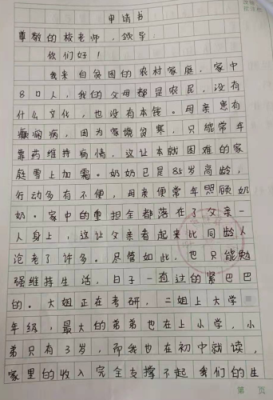 申请书
尊敬的校老师、领导：
你们好！
我来自贫困的农村家庭，家中
8口人，我的父母都是农民，没有
什么文化，也没有本钱。母亲患有
癫痫病，因为家境贫寒，只能常年
靠药维持病情，这让本就困难的家
庭雪上加霜。奶奶已是83岁高龄，
行动多有不便，母亲便常年照顾奶
奶。家中的重担全都落在了父亲一
人身上，这让父亲看起来比同龄人
沧老了许多。尽管如此，也只能勉
强维持生活，日子一直过的紧巴巴
的。大姐正在考研，二姐上大学
年级，最大的弟弟也在上小学，小
弟只有3岁，而我也在初中就读，
家里的收入完全支撑不起我们的生
第 页